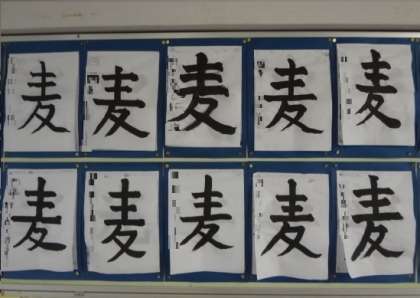 麦 麦 麦 麦 麦
麦 麦 麦 麦 麦